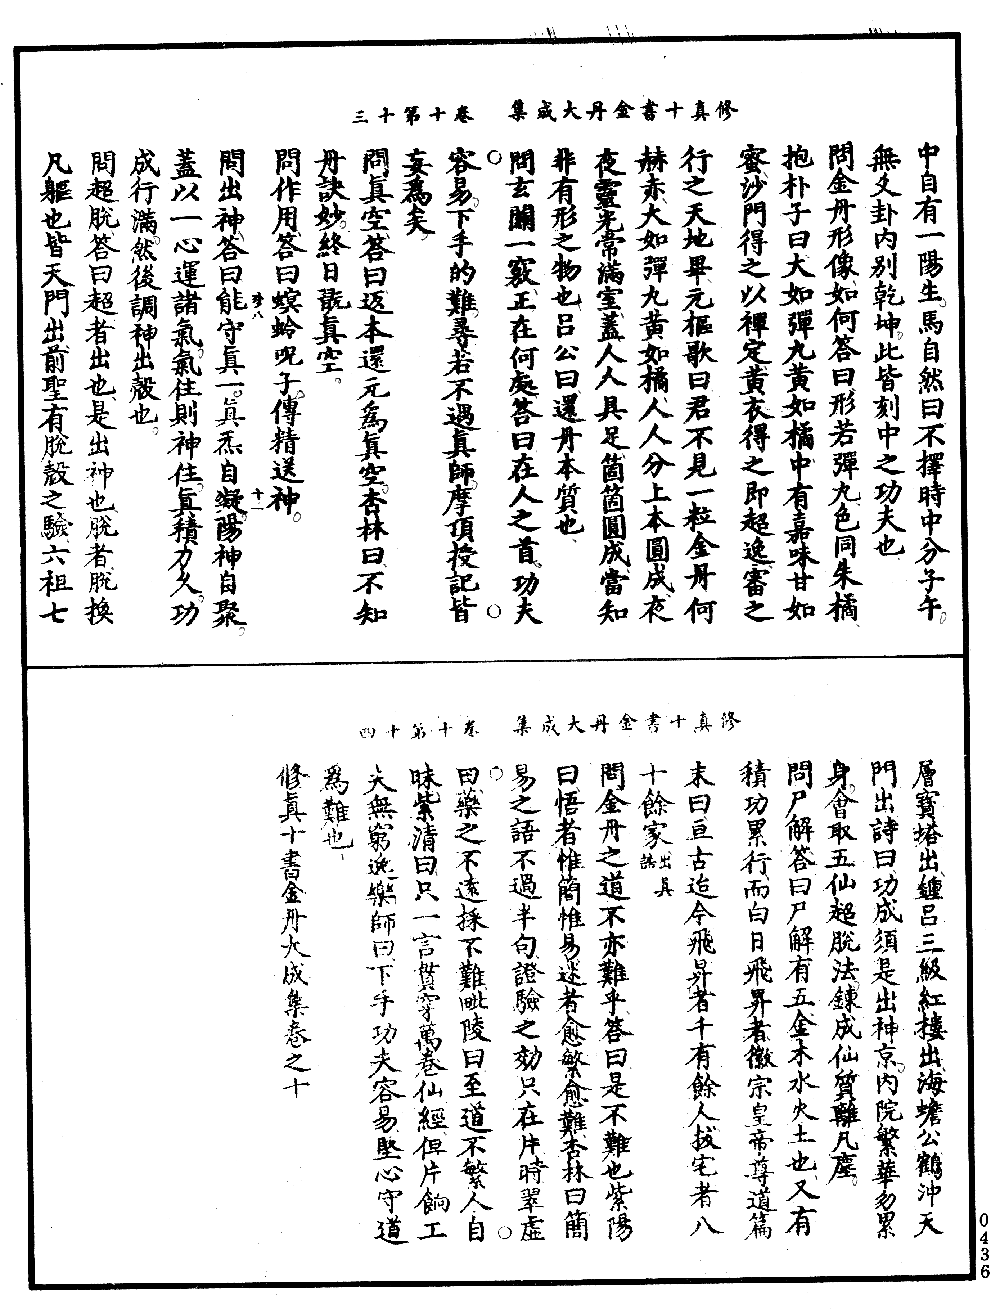 修真十書金丹大成集　卷十第十三
中自有一陽生。馬自然曰不擇時中分子午。
無爻卦內別乾坤。此皆刻中之功夫也
問金丹形像如何答曰形若彈丸色同朱橘
抱朴子曰大如彈丸黄如橘中有嘉味甘如
蜜沙門得之以禪定黄衣得之即超逸審之
行之天地畢元樞歌曰君不見一粒金丹何
赫赤大如彈丸黄如橘人人分上本圓成夜
夜靈光常滿室蓋人人具足箇箇圓成當知
非有形之物也呂公曰還丹本質也
問玄關一竅正在何處答曰在人之首功夫
容易下手的難尋若不遇真師摩頂授記皆
妄為矣
問真空答曰返本還元為真空杏林曰不知
丹訣妙終日翫真空。
問作用答曰螟蛉呪子傳精送神。
珍八　十一
問出神答曰能守真一。真炁自凝陽神自聚。
蓋以一心運諸氣氣住則神住真積力久功
成行滿然後調神出殼也。
問超脫答曰超者出也是出神也脫者脫換
凡軀也皆天門出前聖有脫殼之驗六祖七
修真十書金丹大成集　卷十第十四
層寶塔出鍾呂三級紅樓出海蟾公鶴沖天
門出詩曰功成須是出神京。內院繁華勿累
身會取五仙超脫法鍊成仙質離凡塵。
問尸解答曰尸解有五金木水火土也又有
積功累行而白日飛昇者徽宗皇帝尊道篇
末曰亘古迨今飛昇者千有餘人拔宅者八
十餘家出真誥
問金丹之道不亦難乎答曰是不難也紫陽
曰悟者惟簡惟易迷者愈繁愈難杏林曰簡
易之語不過半句證驗之効只在片時翠虛
曰藥之不遠採不難毗陵曰至道不繁人自
昧紫清曰只一言貫穿萬卷仙經但片餉工
夫無窮逸樂師曰下手功夫容易堅心守道
為難也
修真十書金丹大成集卷之十
0436